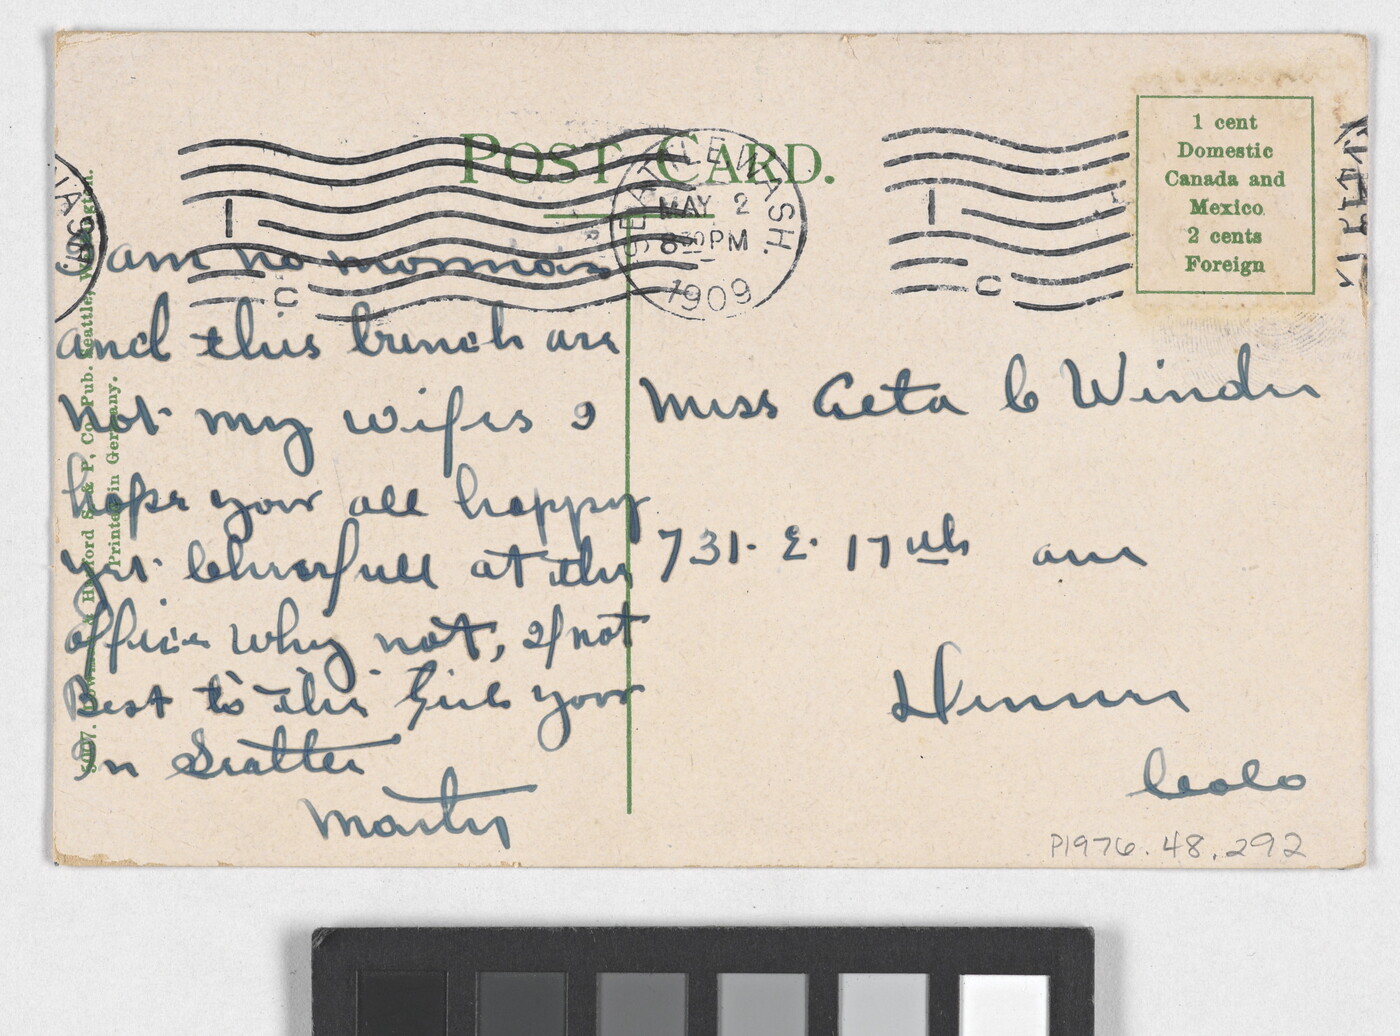 POST CARD.
SEATTLE WASH.
MAY 2
8 30 PM
1909
1
C
1
C
1 cent
Domestic
Canada and
Mexico
2 cents
Foreign
I am no mormon
and this bunch are
not my wifes I
hope your all happy
yet cheerfull at the
office why not, if not
Best to the Girls your
In Seattle
Marty
Miss Aeta C Winder
731. E. 17th ave
Denver
Colo
P1976.48.292
& P. Co. Pub. Seattle, Washington.
Printed in Germany.